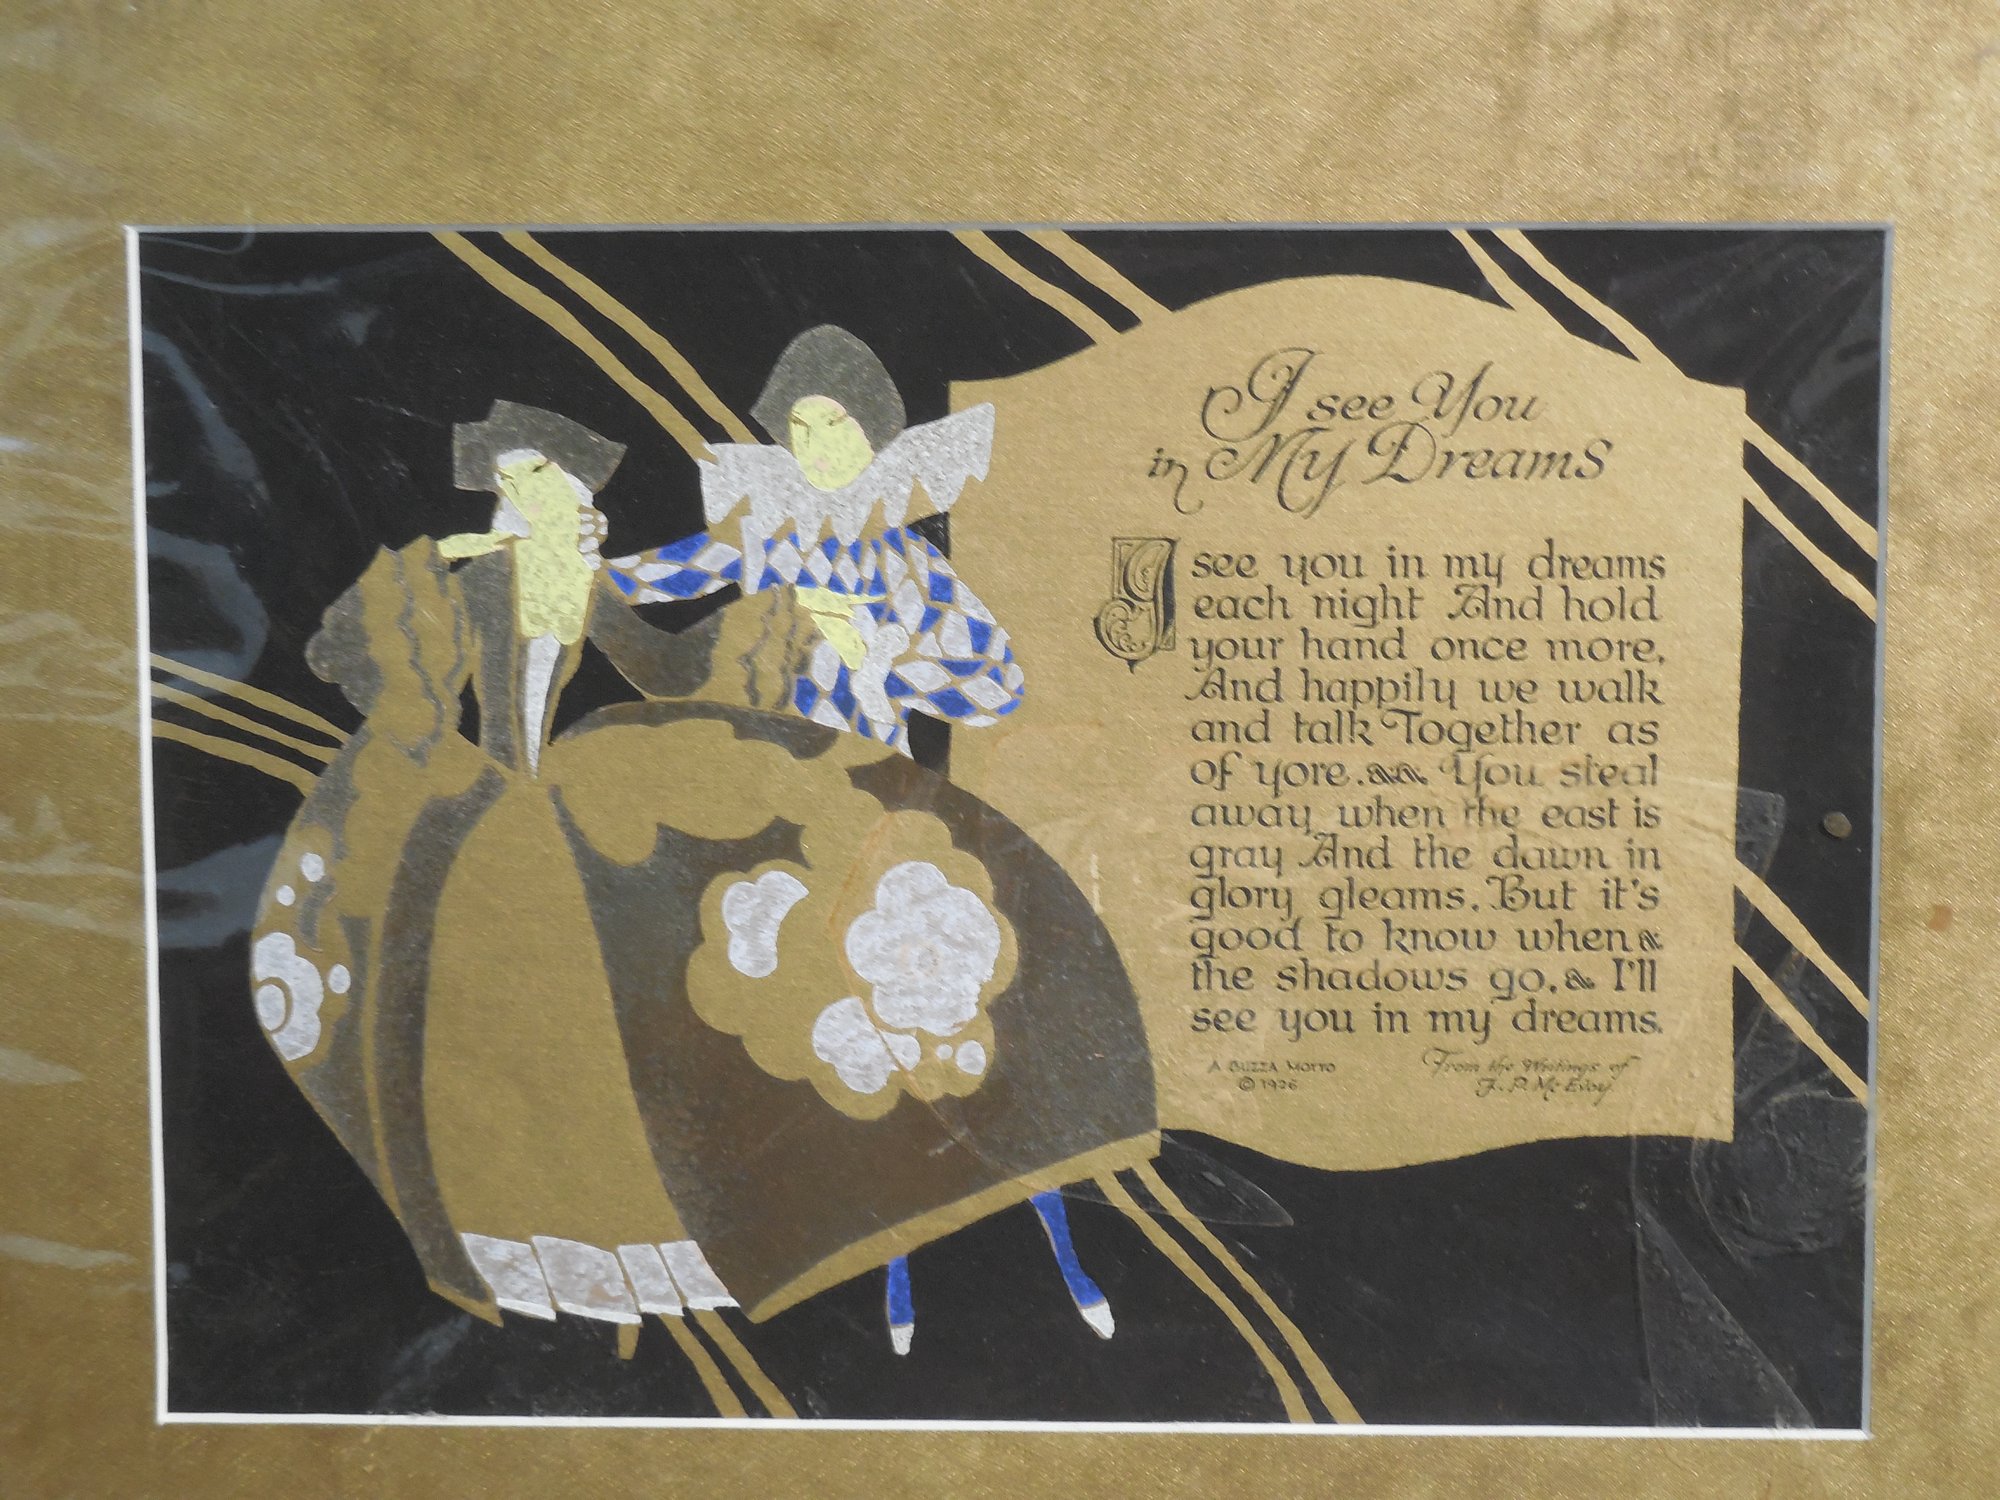 I see You
in My Dreams
I see you in my dreams
each night And hold
your hand once more,
And happily we walk
and talk Together as
of yore. You steal
away when the east is
gray And the dawn in
glory gleams. But it's
good to know when
the shadows go, I'll
see you in my dreams.
A BUZZA MOTTO
© 1926
From the Writings of
J. P. Mc Evoy